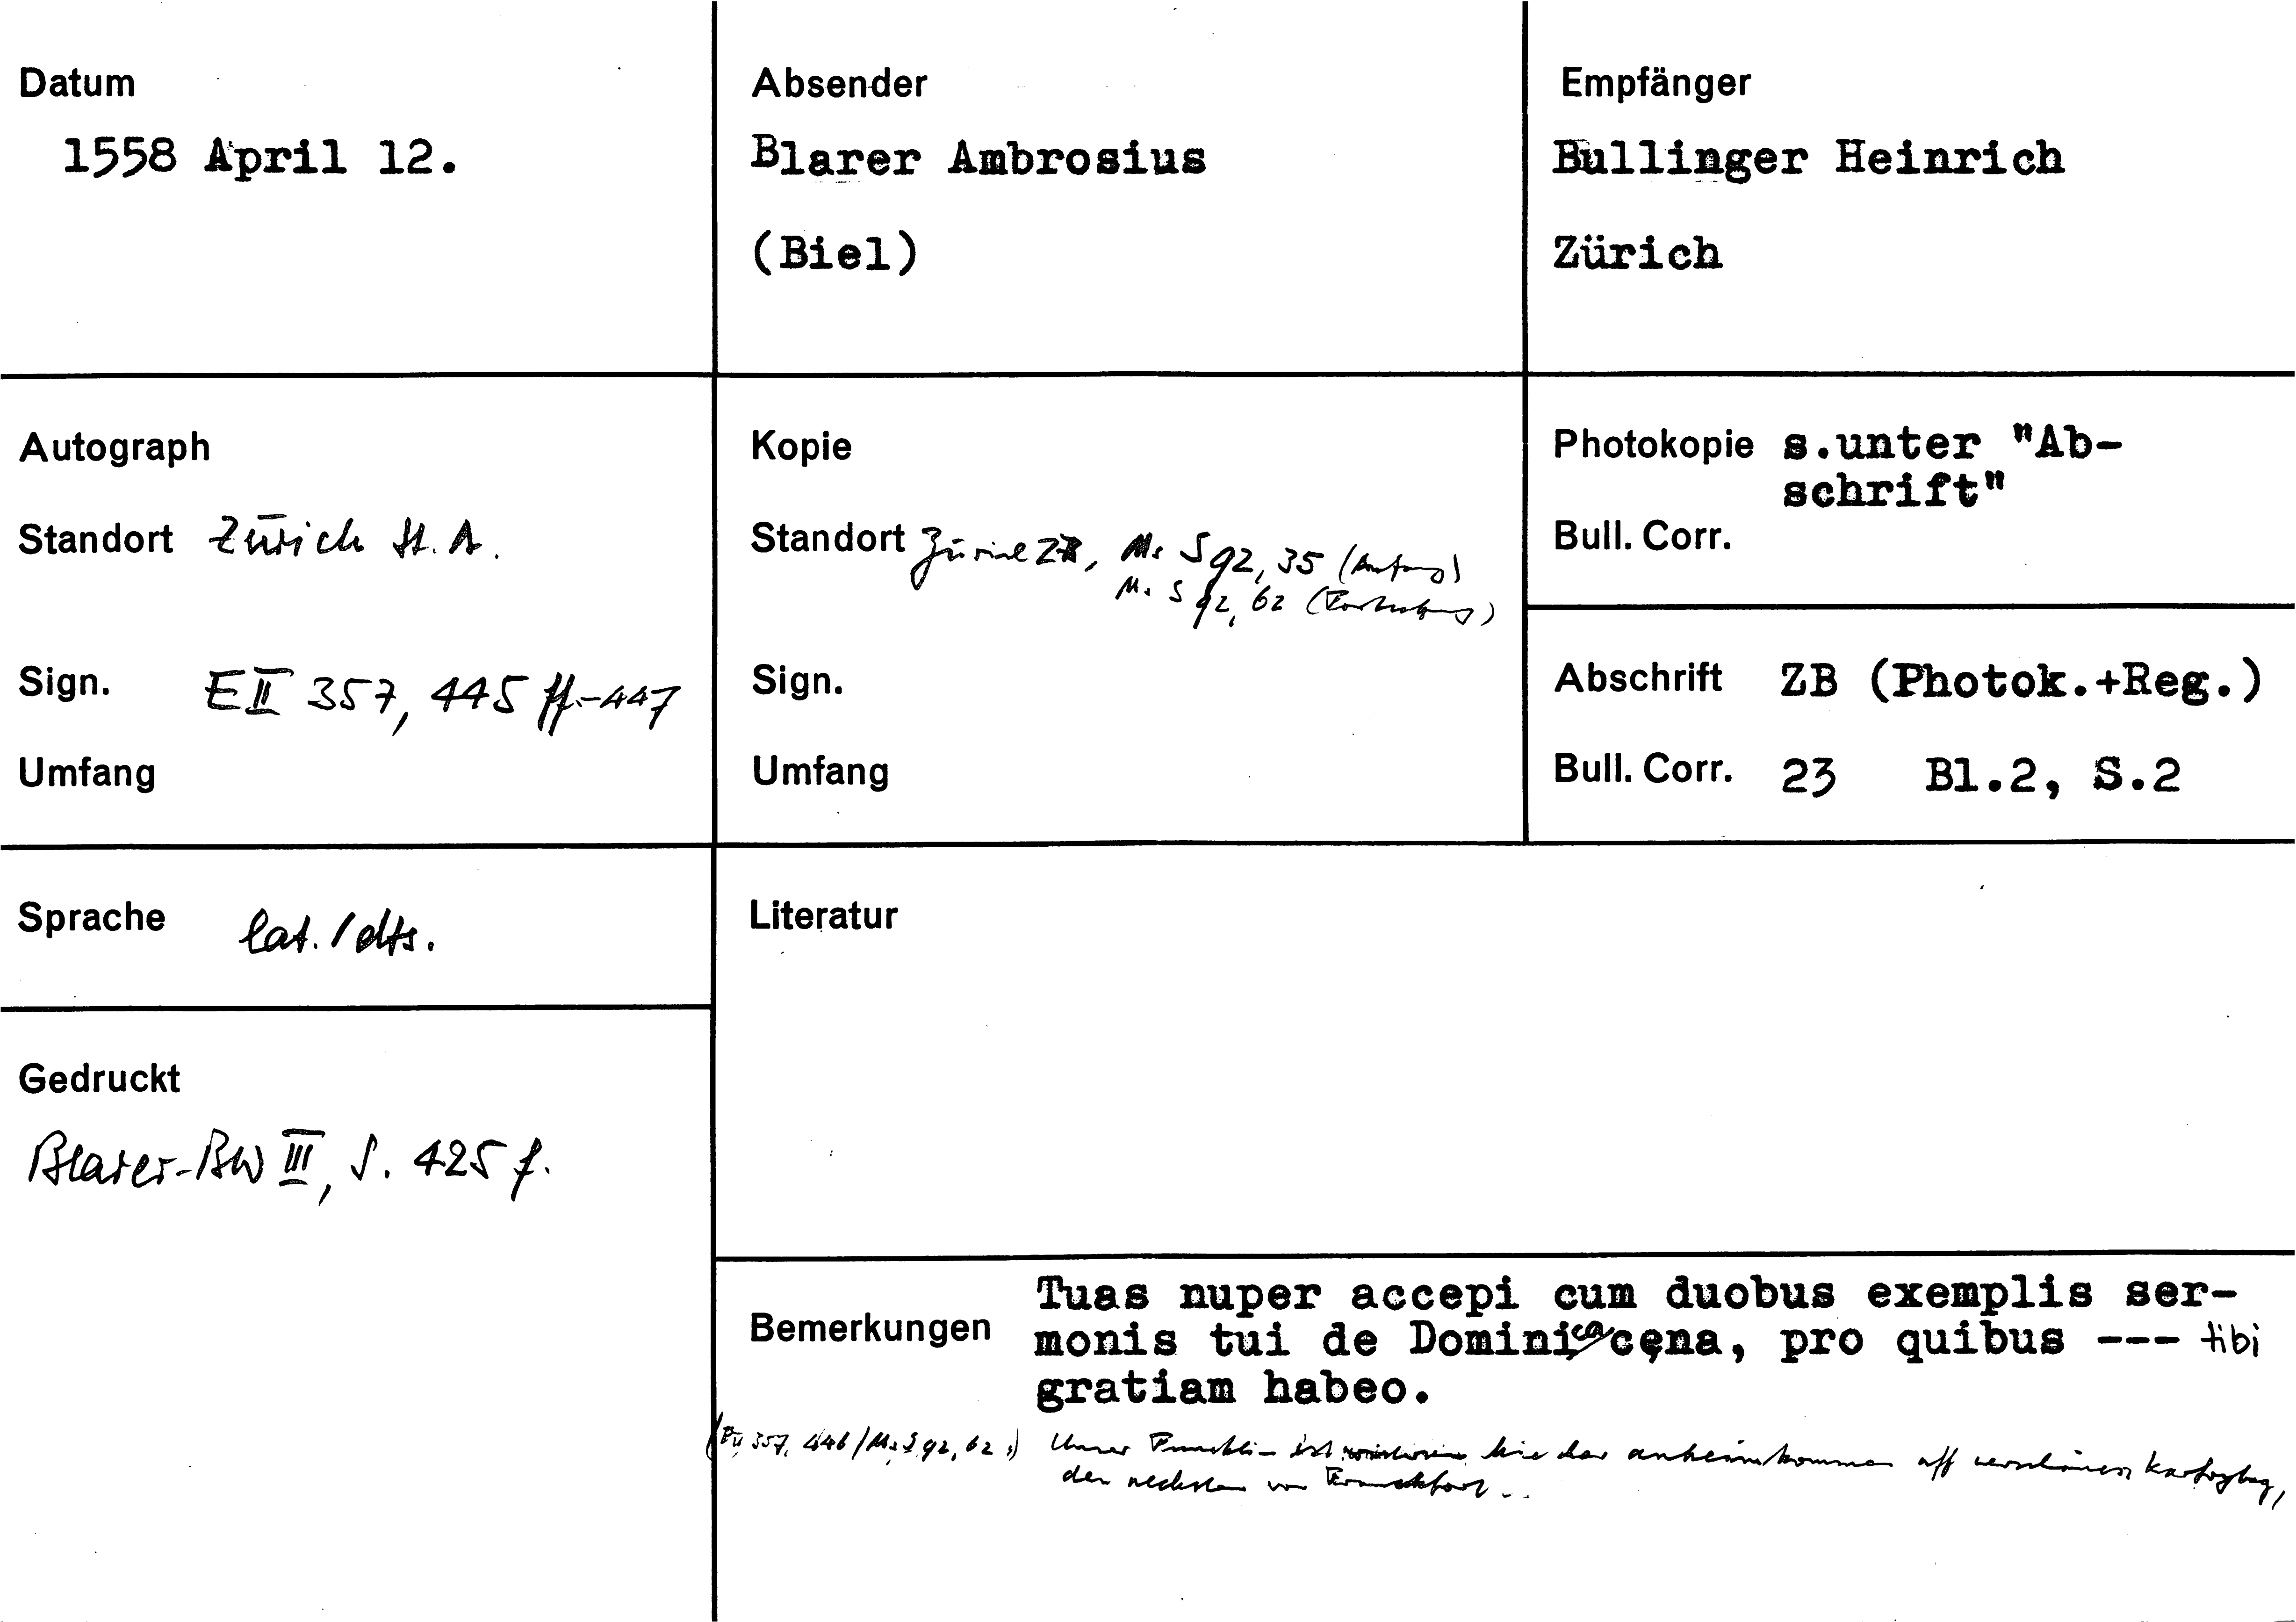 Datum
1558 April 12.
Absender
Blarer Ambrosius
(Biel)
Empfänger
Bullinger Heinrich
Zürich
Autograph
Standort Zürich St. A.
Sign. E II 357, 445 ff.-447
Umfang
Kopie
Standort Zürich ZB, Ms S 92, 35 (Anfang)
Ms S 92, 62 (Fortsetzung)
Sign.
Umfang
Photokopie s.unter "Ab-
schrift"
Bull. Corr.
Abschrift ZB (Photok.+Reg.)
Bull. Corr. 23 Bl.2, S.2
Sprache lat. / dts.
Gedruckt
Blarer-BW III, S. 425 f.
Literatur
Bemerkungen
Tuas nuper accepi cum duobus exemplis ser-
monis tui de Dominica cęna, pro quibus --- tibi
gratiam habeo.
(E II 357, 446 / Ms S 92, 62 :) Unser ist hie der anheimkommen uff
den nechsten von Franckfort...